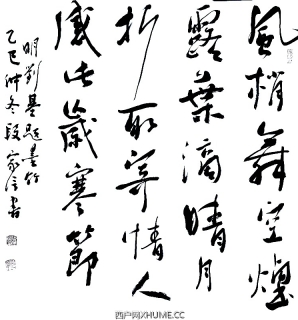 風梢舞空煙
露葉滴晴月
折取寄情人
感此歲寒節
明劉基題墨竹
乙巳仲冬段家信書
XHUME.CC